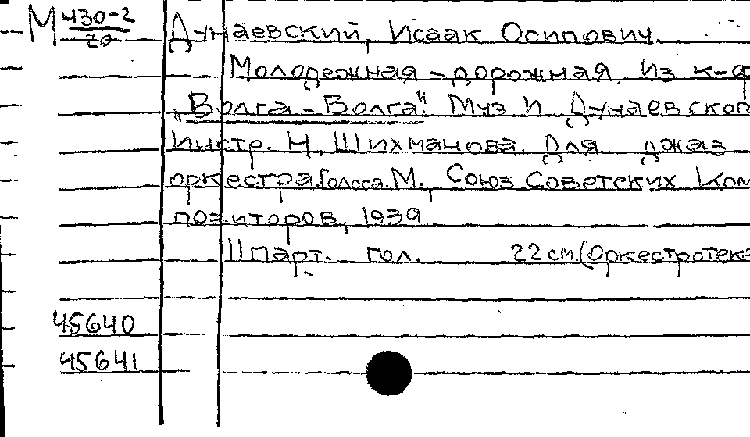 М 430-2
20
Дунаевский, Исаак Осипович.
Молодежная-дорожная. Из к-ф
„Волга-Волга". Муз. И. Дунаевског
Инстр. Н. Шихманова. Для джаз
оркестра. Голоса. М., Союз Советских Ком
позиторов, 1939
11 парт. гол. 22 см. (Оркестротека
45640
45641